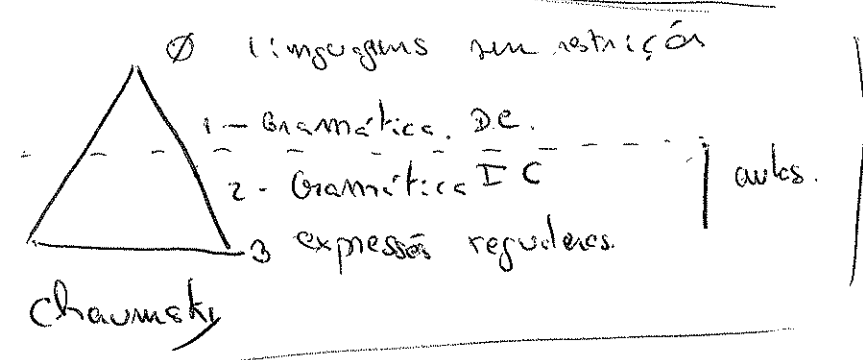 Ø linguagens sem restrição
1 - Gramática. DC.
2 - Gramática IC
aulas.
3 expressões regulares.
Chaumsky